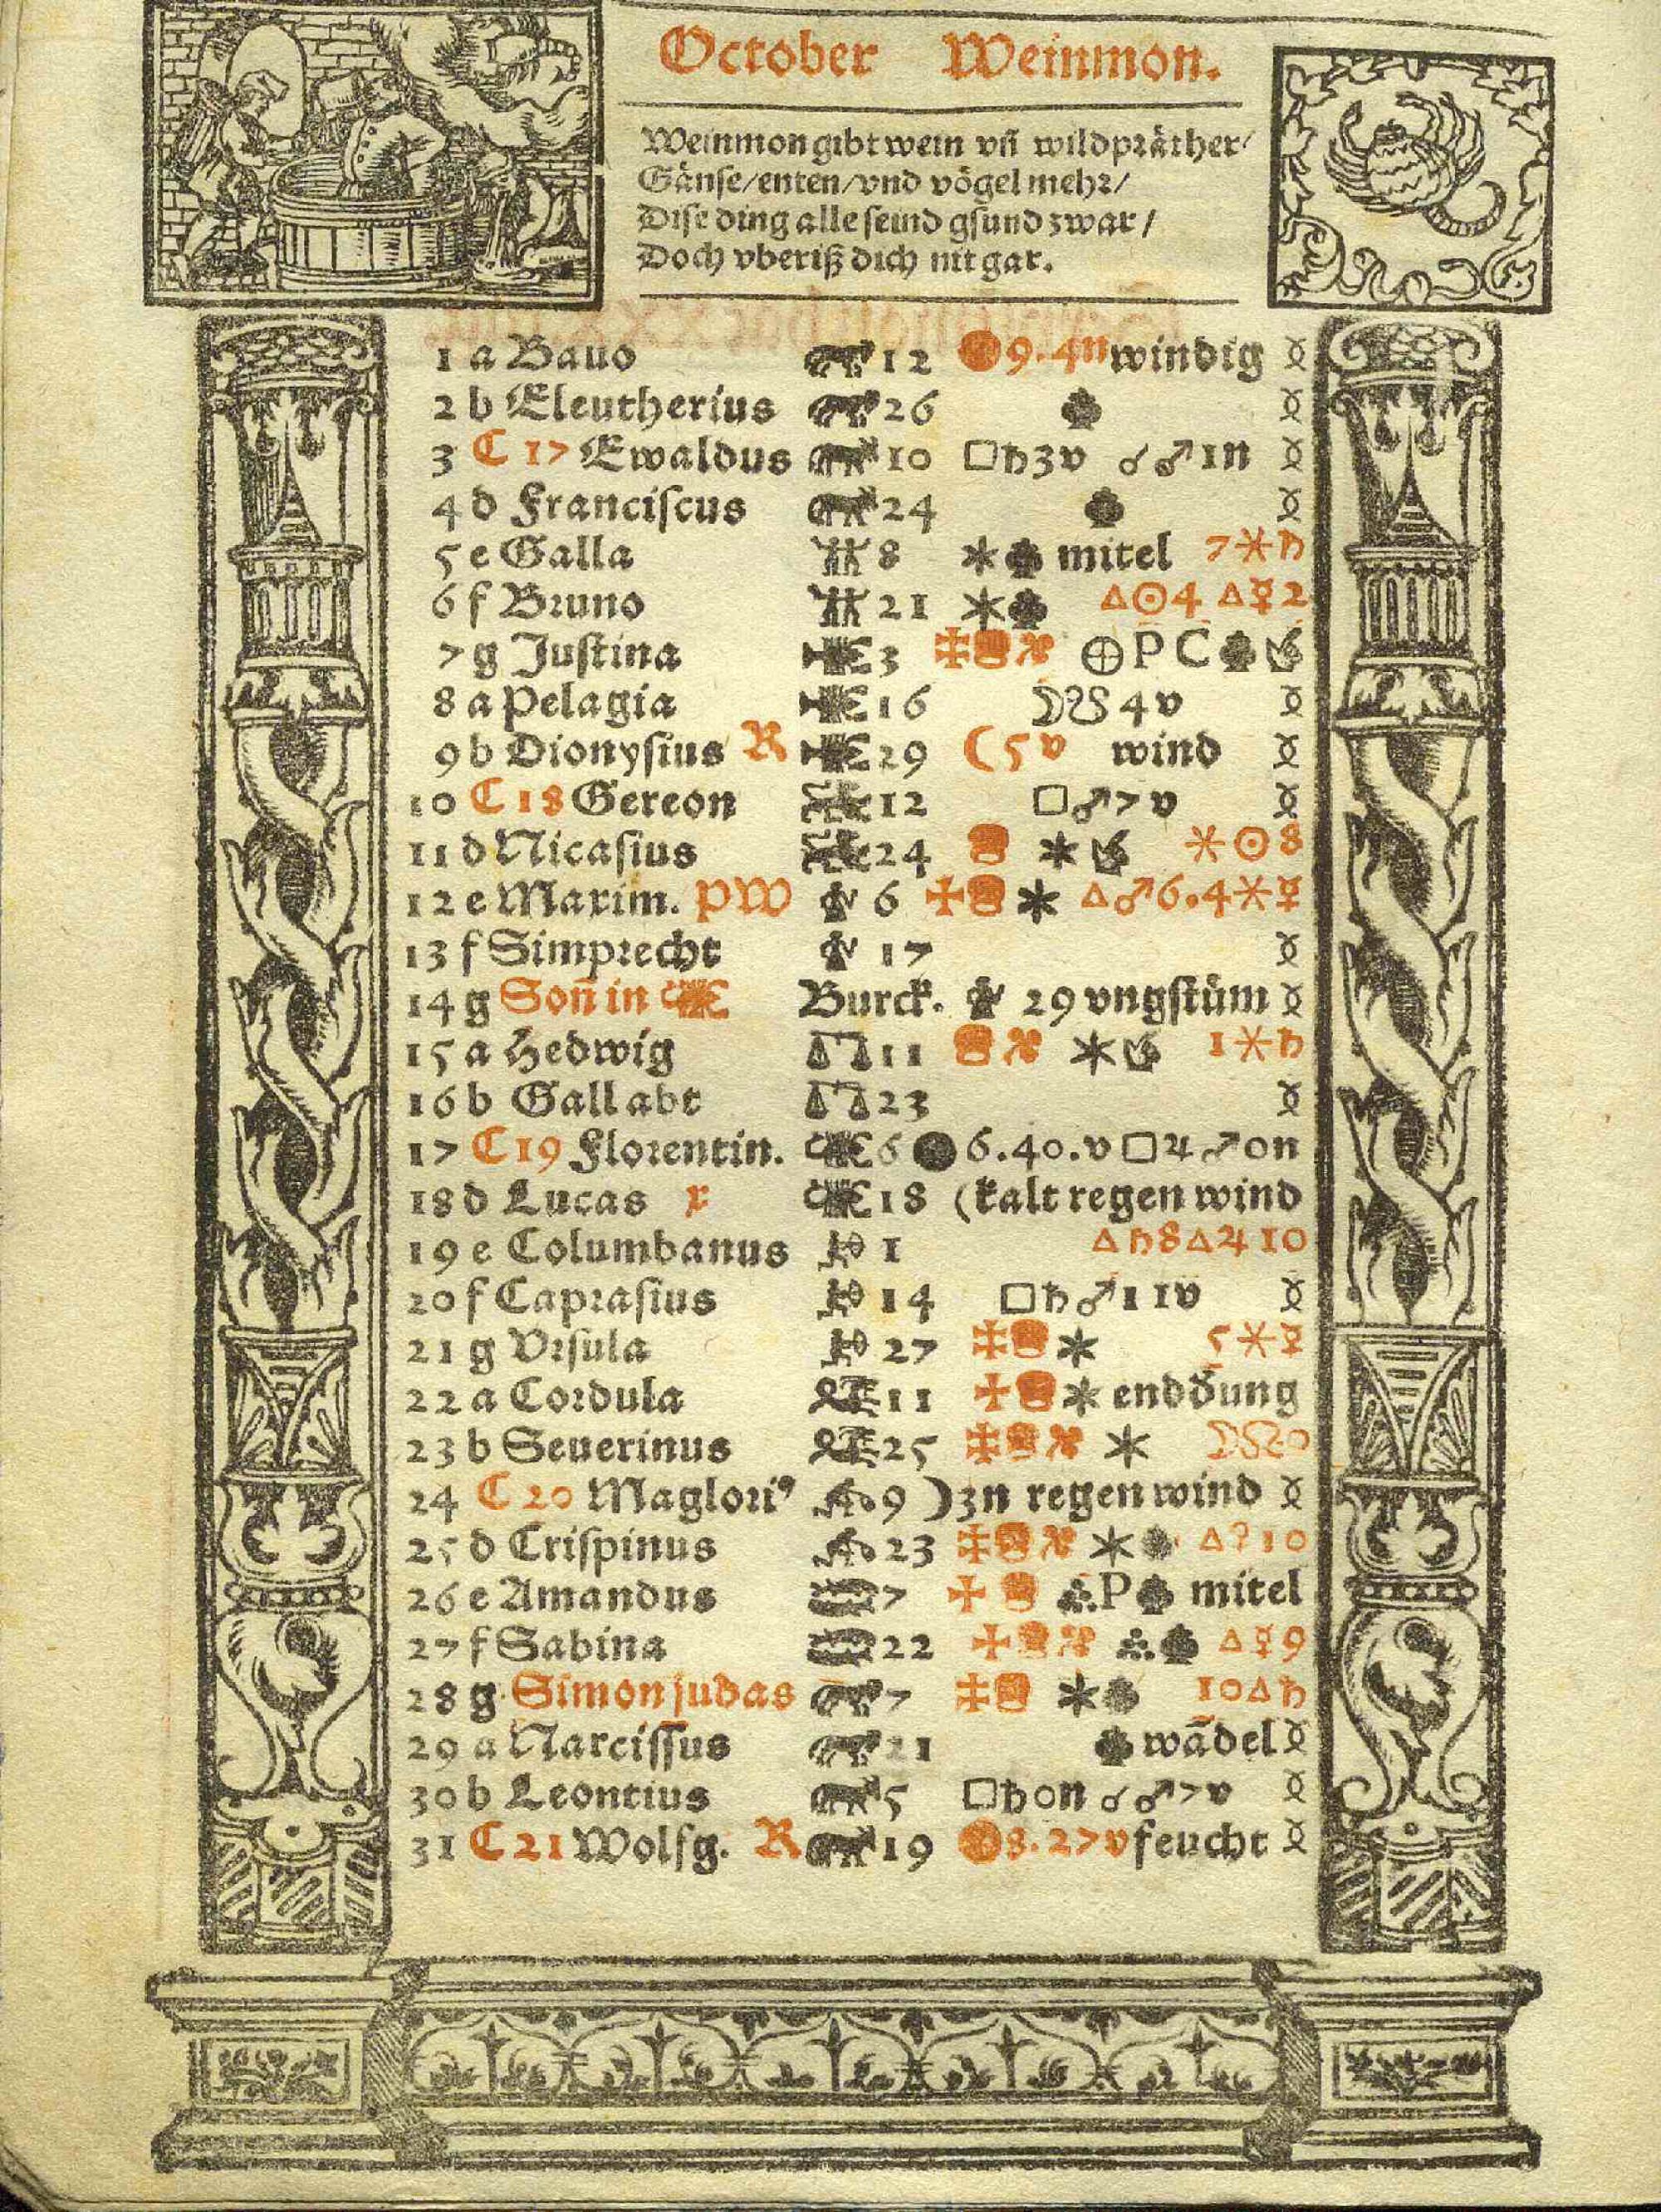 October Weinmon.
Weinmon gibt wein vñ wildpräther/
Gänse/enten/vnd vögel mehr/
Dise ding alle seind gsund zwar/
Doch vberiß dich nit gar.
1 a Bauo 12 9.4n windig
2 b Eleutherius 26
3 C 17 Ewaldus 10 □♄3v ☌♂1n
4 d Franciscus 24
5 e Galla 8 mitel 7⚹♄
6 f Bruno 21 △☉4 △☿2
7 g Justina 3 ⊕ P C
8 a Pelagia 16 ☽☋4v
9 b Dionysius R 29 (5 v wind
10 C 18 Gereon 12 □♂7v
11 d Nicasius 24 ⚹☉8
12 e Maxim. PW 6 △♂6.4⚹☿
13 f Simprecht 17
14 g Soñ in Burck. 29 vngstüm
15 a Hedwig 11 1⚹♄
16 b Gall abt 23
17 C 19 Florentin. 6 6.40.v □♃♂on
18 d Lucas r 18 (kalt regen wind
19 e Columbanus 1 △♄8△♃10
20 f Caprasius 14 □♄♂11v
21 g Vrsula 27 5⚹☿
22 a Cordula 11 enddung
23 b Seuerinus 25 ☽☊0
24 C 20 Maglori9 9 )3n regen wind
25 d Crispinus 23 △♀10
26 e Amandus 7 P mitel
27 f Sabina 22 △☿9
28 g Simon judas 7 10△♄
29 a Narcissus 21 wādel
30 b Leontius 5 □♄on ☌♂7v
31 C 21 Wolfg. R 19 8.27v feucht